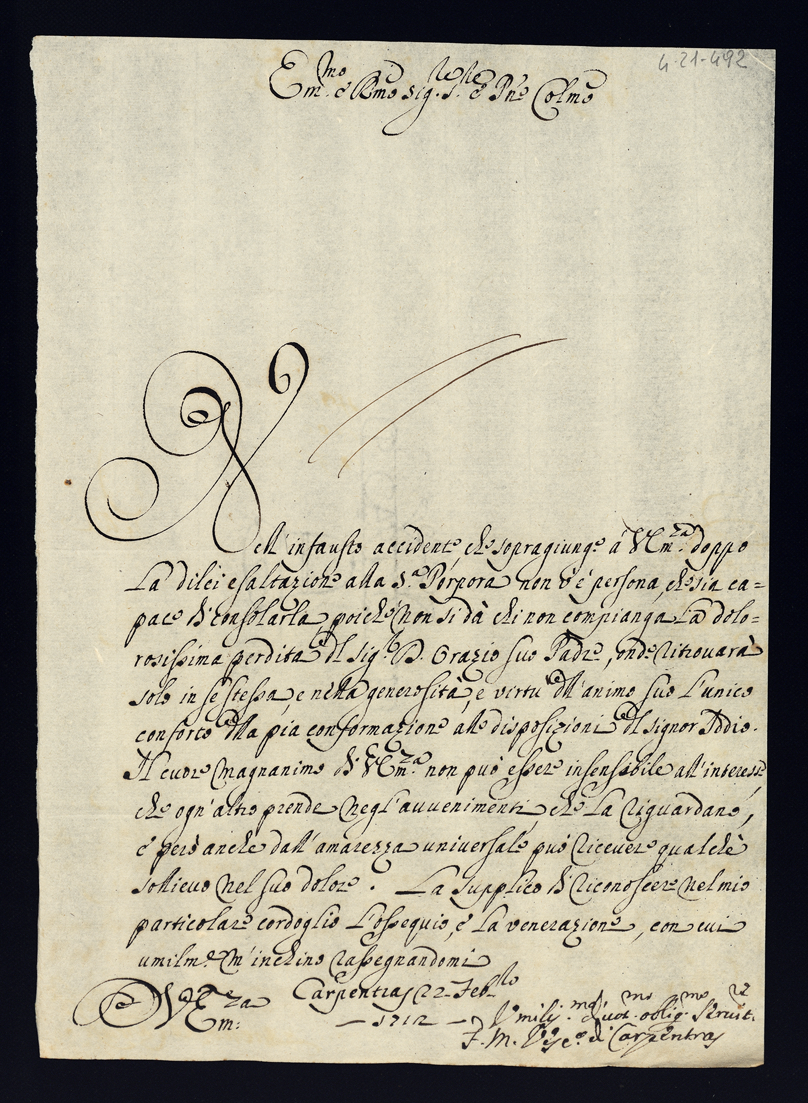 4-21-492
Em.mo e Rmo Sig.r S.re e Pne Colmo
Nell'infausto accidente che sopragiunge à V Em.za doppo
La di lei esaltazione alla S.a Porpora non v'è persona, che sia ca=
pace di consolarla, poiche non si dà chi non compianga La dolo=
rosissima perdita del Sig.r D. Orazio suo Padre, onde ritrouarà
solo in se stessa, e nella generosità, e virtù dell'animo suo l'unico
conforto della pia conformazione alle disposizioni del Signor Iddio.
Il cuore magnanimo di V Em.za non può esser insensibile all'interesse,
che ogn'altro prende negl'auvenimenti, che La riguardano,
e però anche dall'amarezza universale può riceuere qualchè
sollieuo nel suo dolore. La supplico di riconoscere nel mio
particolare cordoglio l'ossequio, e la venerazione, con cui
umilm.e m'inchino rassegnandomi
Di V Em:za Carpentras 22 Feb.ro
– 1712 – Umilis.mo diuot.mo oblig.mo Seruit.re
F. M. Vesc.o di Carpentras